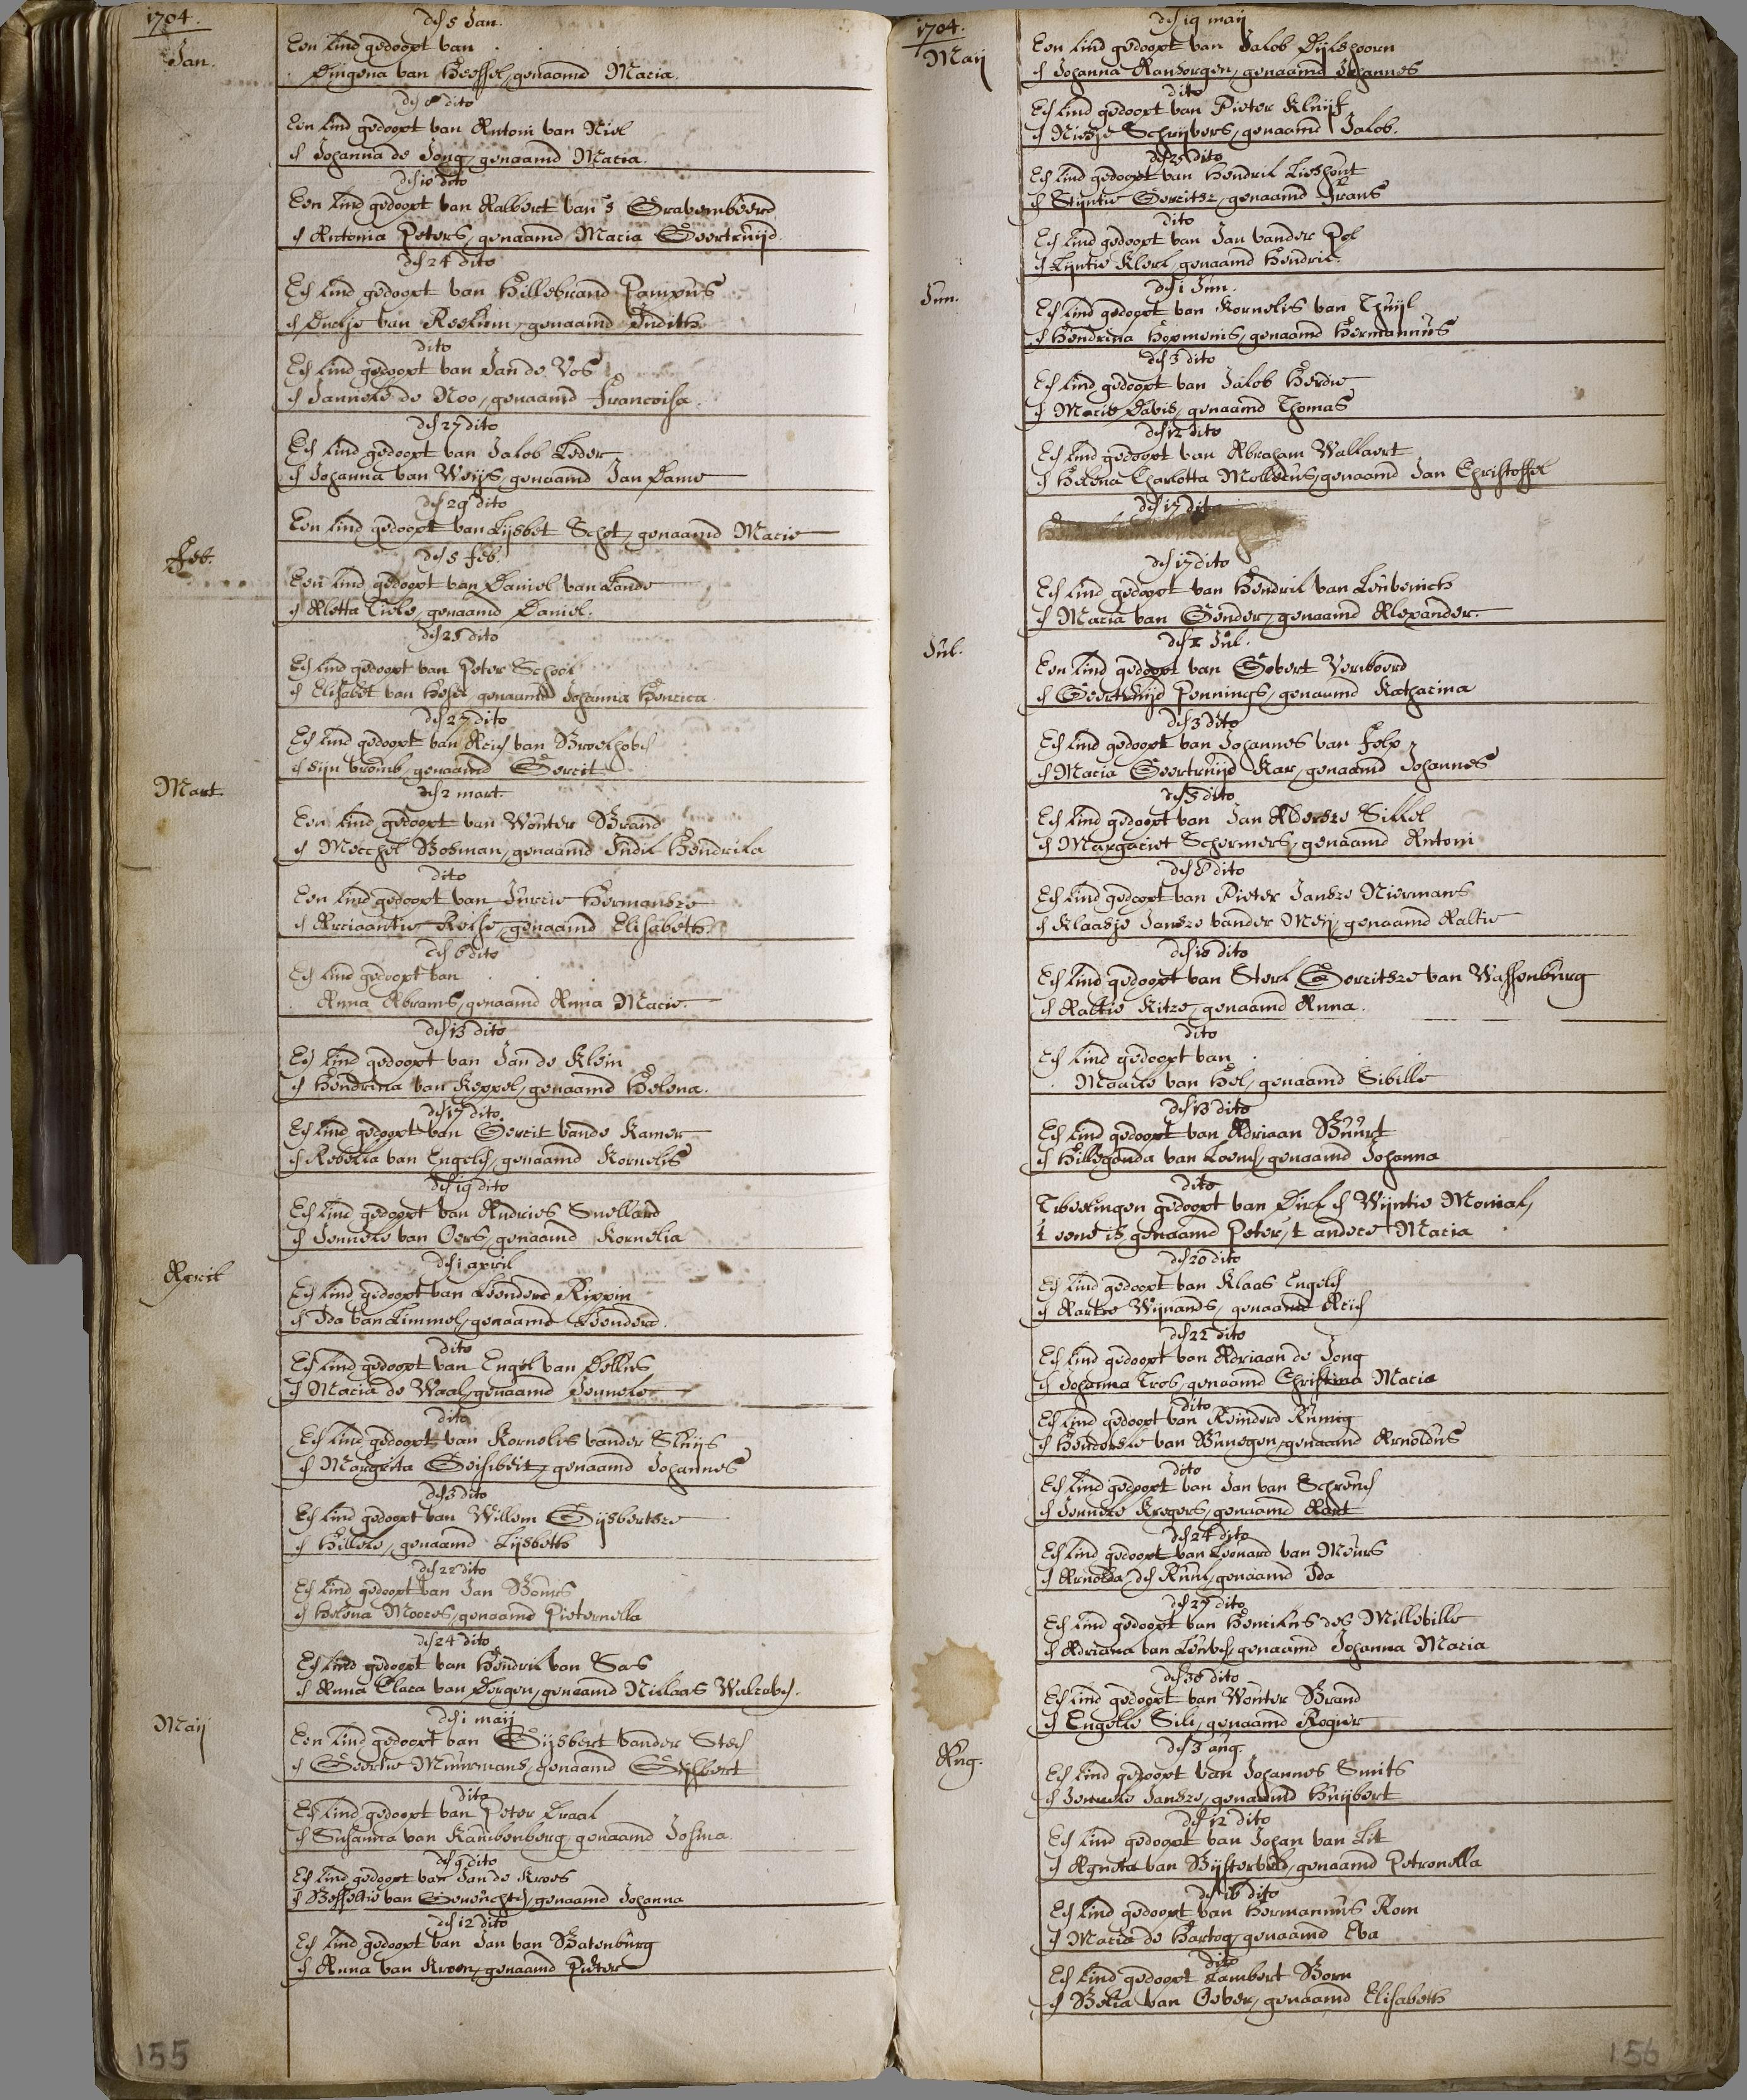 1704.
Jan.
den 5 Jan.
Een kind gedoopt van
Dingena van Hessel, genaamd Maria.
den 8 dito
Een kind gedoopt van Antoni van Niel
en Johanna de Jong, genaamd Maria.
den 10 dito
Een kind gedoopt van Aalbert van 's Gravenweerd
en Antonia Peters, genaamd Maria Geertruijd.
den 24 dito
Een kind gedoopt van Hillebrand Pampus
en van Reekum, genaamd Judith.
dito
Een kind gedoopt van Jan de Vos
en Janneke de Noo, genaamd Francoisa.
den 27 dito
Een kind gedoopt van Jakob Leder
en Johanna van Weijs, genaamd Jan Dame
den 29 dito
Een kind gedoopt van Lijsbet Schot, genaamd Marie
Feb.
den 5 feb.
Een kind gedoopt van Daniel van Londe
en Aletta Tiele, genaamd Daniel.
den 21 dito
Een kind gedoopt van Peter School
en Elisabet van genaamd Johanna Henrica
den 27 dito
Een kind gedoopt van Arien van Broekhoven
en sijn vrouw, genaamd Gerrit.
Mart
den 2 mart.
Een kind gedoopt van Wouter Brand
en Mechgel Bosman, genaamd Hendrika
dito
Een kind gedoopt van Jurrie Hermansze
en Arriaantie genaamd Elisabeth.
den 6 dito
Een kind gedoopt van
Anna Abrams, genaamd Anna Marie.
den 13 dito
Een kind gedoopt van Jan de Klein
en Hendrina van Keppel, genaamd Helena.
den 17 dito
Een kind gedoopt van Gerrit vande Kamer
en Rebekka van Engelen, genaamd Kornelis
den 19 dito
Een kind gedoopt van Andries Snellard
en Jenneke van Oers, genaamd Kornelia
April
den 1 april
Een kind gedoopt van Leenderd Rippin
en Ida van Kimmel, genaamd Leenderd.
dito
Een kind gedoopt van Engel van Dolles
en Maria de Waal, genaamd Jenneke
dito
Een kind gedoopt van Kornelis vander Sluijs
en Margrita genaamd Johannes
den 5 dito
Een kind gedoopt van Willem Gijsbertsze
en Hilleke, genaamd Lijsbeth
den 22 dito
Een kind gedoopt van Jan Boms
en Helena Moores, genaamd Pieternella
den 24 dito
Een kind gedoopt van Hendrik van Sas
en Anna Clara van Dorgen, genaamd Niklaas Walraven.
Maij
den 1 maij
Een kind gedoopt van Gijsbert vander Steen
en Geertie Muurmans, genaamd Gijsbert
Dito
Een kind gedoopt van Peter Draak
en Susanna van Kauwenberg, genaamd Josina.
den 9 dito
Een kind gedoopt van Jan de Kroes
en Besseltie van genaamd Johanna
den 12 dito
Een kind gedoopt van Jan van Batenburg
en Anna van Kroon, genaamd Pieter
155
1704.
Maij
den 19 maij
Een kind gedoopt van Jakob Dijkshoorn
en Johanna Ransorgen, genaamd Johannes
dito
Een kind gedoopt van Pieter Kluijf
en Niesje Schrijvers, genaamd Jakob.
den 25 dito
Een kind gedoopt van Hendrik Lieshout
en Stijntie Gerritsz, genaamd Frans
dito
Een kind gedoopt van Jan vander Pol
en Lijntie Klerk, genaamd Hendrik.
Jun.
den 1 Jun.
Een kind gedoopt van Kornelis van Thuijl
en Hendrina Hopmenis, genaamd Hermannus
den 3 dito
Een kind gedoopt van Jakob Herdie
en Marie Davis, genaamd Thomas
den 12 dito
Een kind gedoopt van Abraham Wallaert
en Helena Charlotta Mollerus, genaamd Jan Christoffel
den 17 dito
den 17 dito
Een kind gedoopt van Hendrik van Leuvenich
en Maria van Gender, genaamd Alexander.
Jul.
den 1 Jul.
Een kind gedoopt van Govert Verwoerd
en Geertruijd Pennings, genaamd Katharina
den 3 dito
Een kind gedoopt van Johannes van Felp
en Maria Geertruijd Kar, genaamd Johannes
den 5 dito
Een kind gedoopt van Jan Aldersze Sikkel
en Margariet Schermers, genaamd Antoni
den 8 dito
Een kind gedoopt van Pieter Jansze Niermans
en Klaasje Jansze vander Meij, genaamd Aaltie
den 10 dito
Een kind gedoopt van Sterk Gerritsze van Wassenburg
en Aaltie Ritze, genaamd Anna.
dito
Een kind gedoopt van
Maaike van Hel, genaamd Sibille
den 13 dito
Een kind gedoopt van Adriaan Buurt
en Hillegonda van Loenen, genaamd Johanna
dito
Tweelingen gedoopt van Dirk en Wijntie Moniak,
't eene is genaamd Peter, 't andere Maria
den 20 dito
Een kind gedoopt van Klaas Engelen
en Aartie Wijnands, genaamd Arien
den 22 dito
Een kind gedoopt van Adriaan de Jong
en Johanna Tros, genaamd Christina Maria
dito
Een kind gedoopt van Reinderd Runnig
en Henderske van Bunegen, genaamd Arnoldus
dito
Een kind gedoopt van Jan van Schauen
en Jenneke Kregers, genaamd Aart
den 24 dito
Een kind gedoopt van Leonard van Meurs
en Arnolda den Kuul, genaamd Ida
den 27 dito
Een kind gedoopt van Henrikus des Milleville
en Adriana van Leuven, genaamd Johanna Maria
den 30 dito
Een kind gedoopt van Wouter Brand
en Engeltie Sili, genaamd Rogier
Aug.
den 3 aug.
Een kind gedoopt van Johannes Smits
en Jenneke Jansze, genaamd Huijbert
den 12 dito
Een kind gedoopt van Johan van Lit
en Agneta van Bijsterveld, genaamd Petronella
den 16 dito
Een kind gedoopt van Hermannus Rom
en Maria de Hartog, genaamd Eva
dito
Een kind gedoopt Lambert Born
en Belia van Oever, genaamd Elisabeth
156